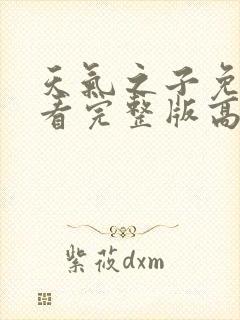 天氣之子免
看完整版高
紫莜dxm